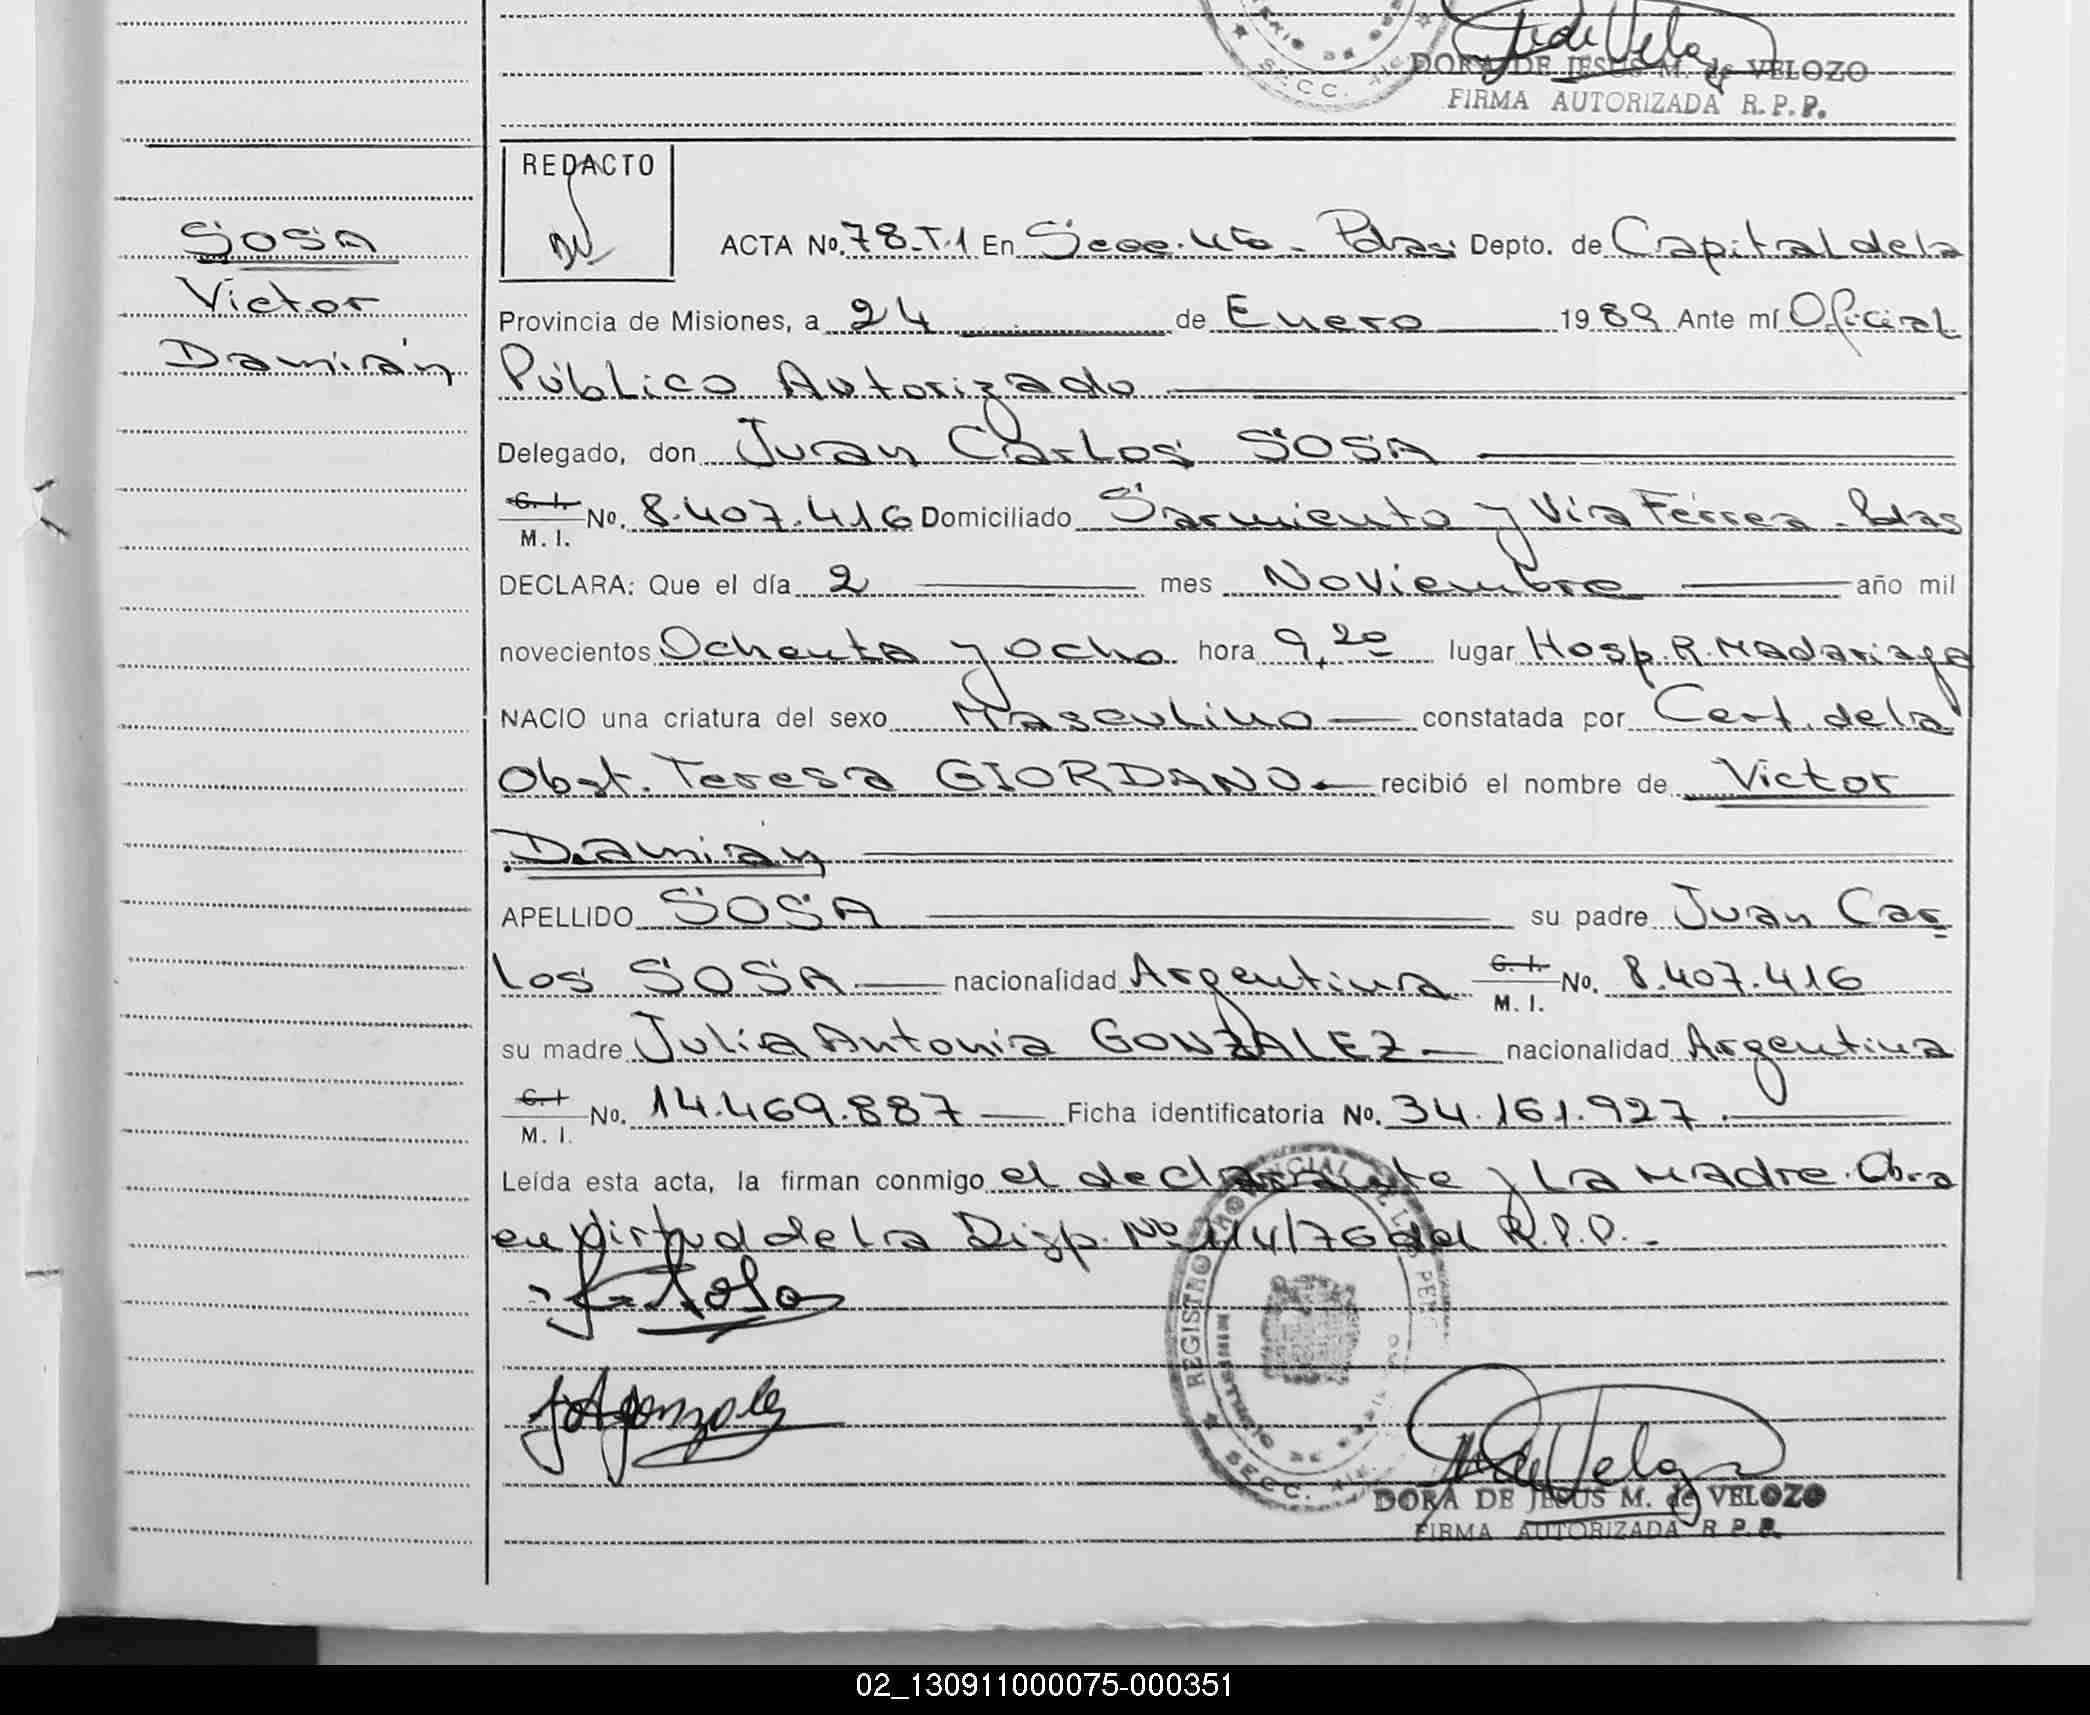 DORA DE JESUS M. de VELOZO
FIRMA AUTORIZADA R.P.P.
REDACTO
SOSA
Victor
Damián
ACTA No. 78-T.1 En Secc. 4ta - Pdas. Depto. de Capital de la
Provincia de Misiones, a 24 de Enero 1989 Ante mí Oficial
Público Autorizado
Delegado, don Juan Carlos SOSA
C. I. M. I. No. 8.407.416 Domiciliado Sarmiento y Vía Férrea - Pdas
DECLARA: Que el día 2 mes Noviembre año mil
novecientos Ochenta y ocho hora 9,20 lugar Hosp. R. Madariaga
NACIO una criatura del sexo Masculino constatada por Cert. de la
Obst. Teresa GIORDANO recibió el nombre de Victor
Damián
APELLIDO SOSA su padre Juan Car
los SOSA nacionalidad Argentina C. I. M. I. No. 8.407.416
su madre Julia Antonia GONZALEZ nacionalidad Argentina
C. I M. I. No. 14.469.887 Ficha identificatoria No. 34.161.927.
Leída esta acta, la firman conmigo el declarante y La Madre. Obra
en virtud de la Disp. Nº 114/76 del R.P.P.-
REGISTRO PROVINCIAL DE LAS PER
SECC.
DORA DE JESUS M. de VELOZO
FIRMA AUTORIZADA R.P.P.
02_130911000075-000351